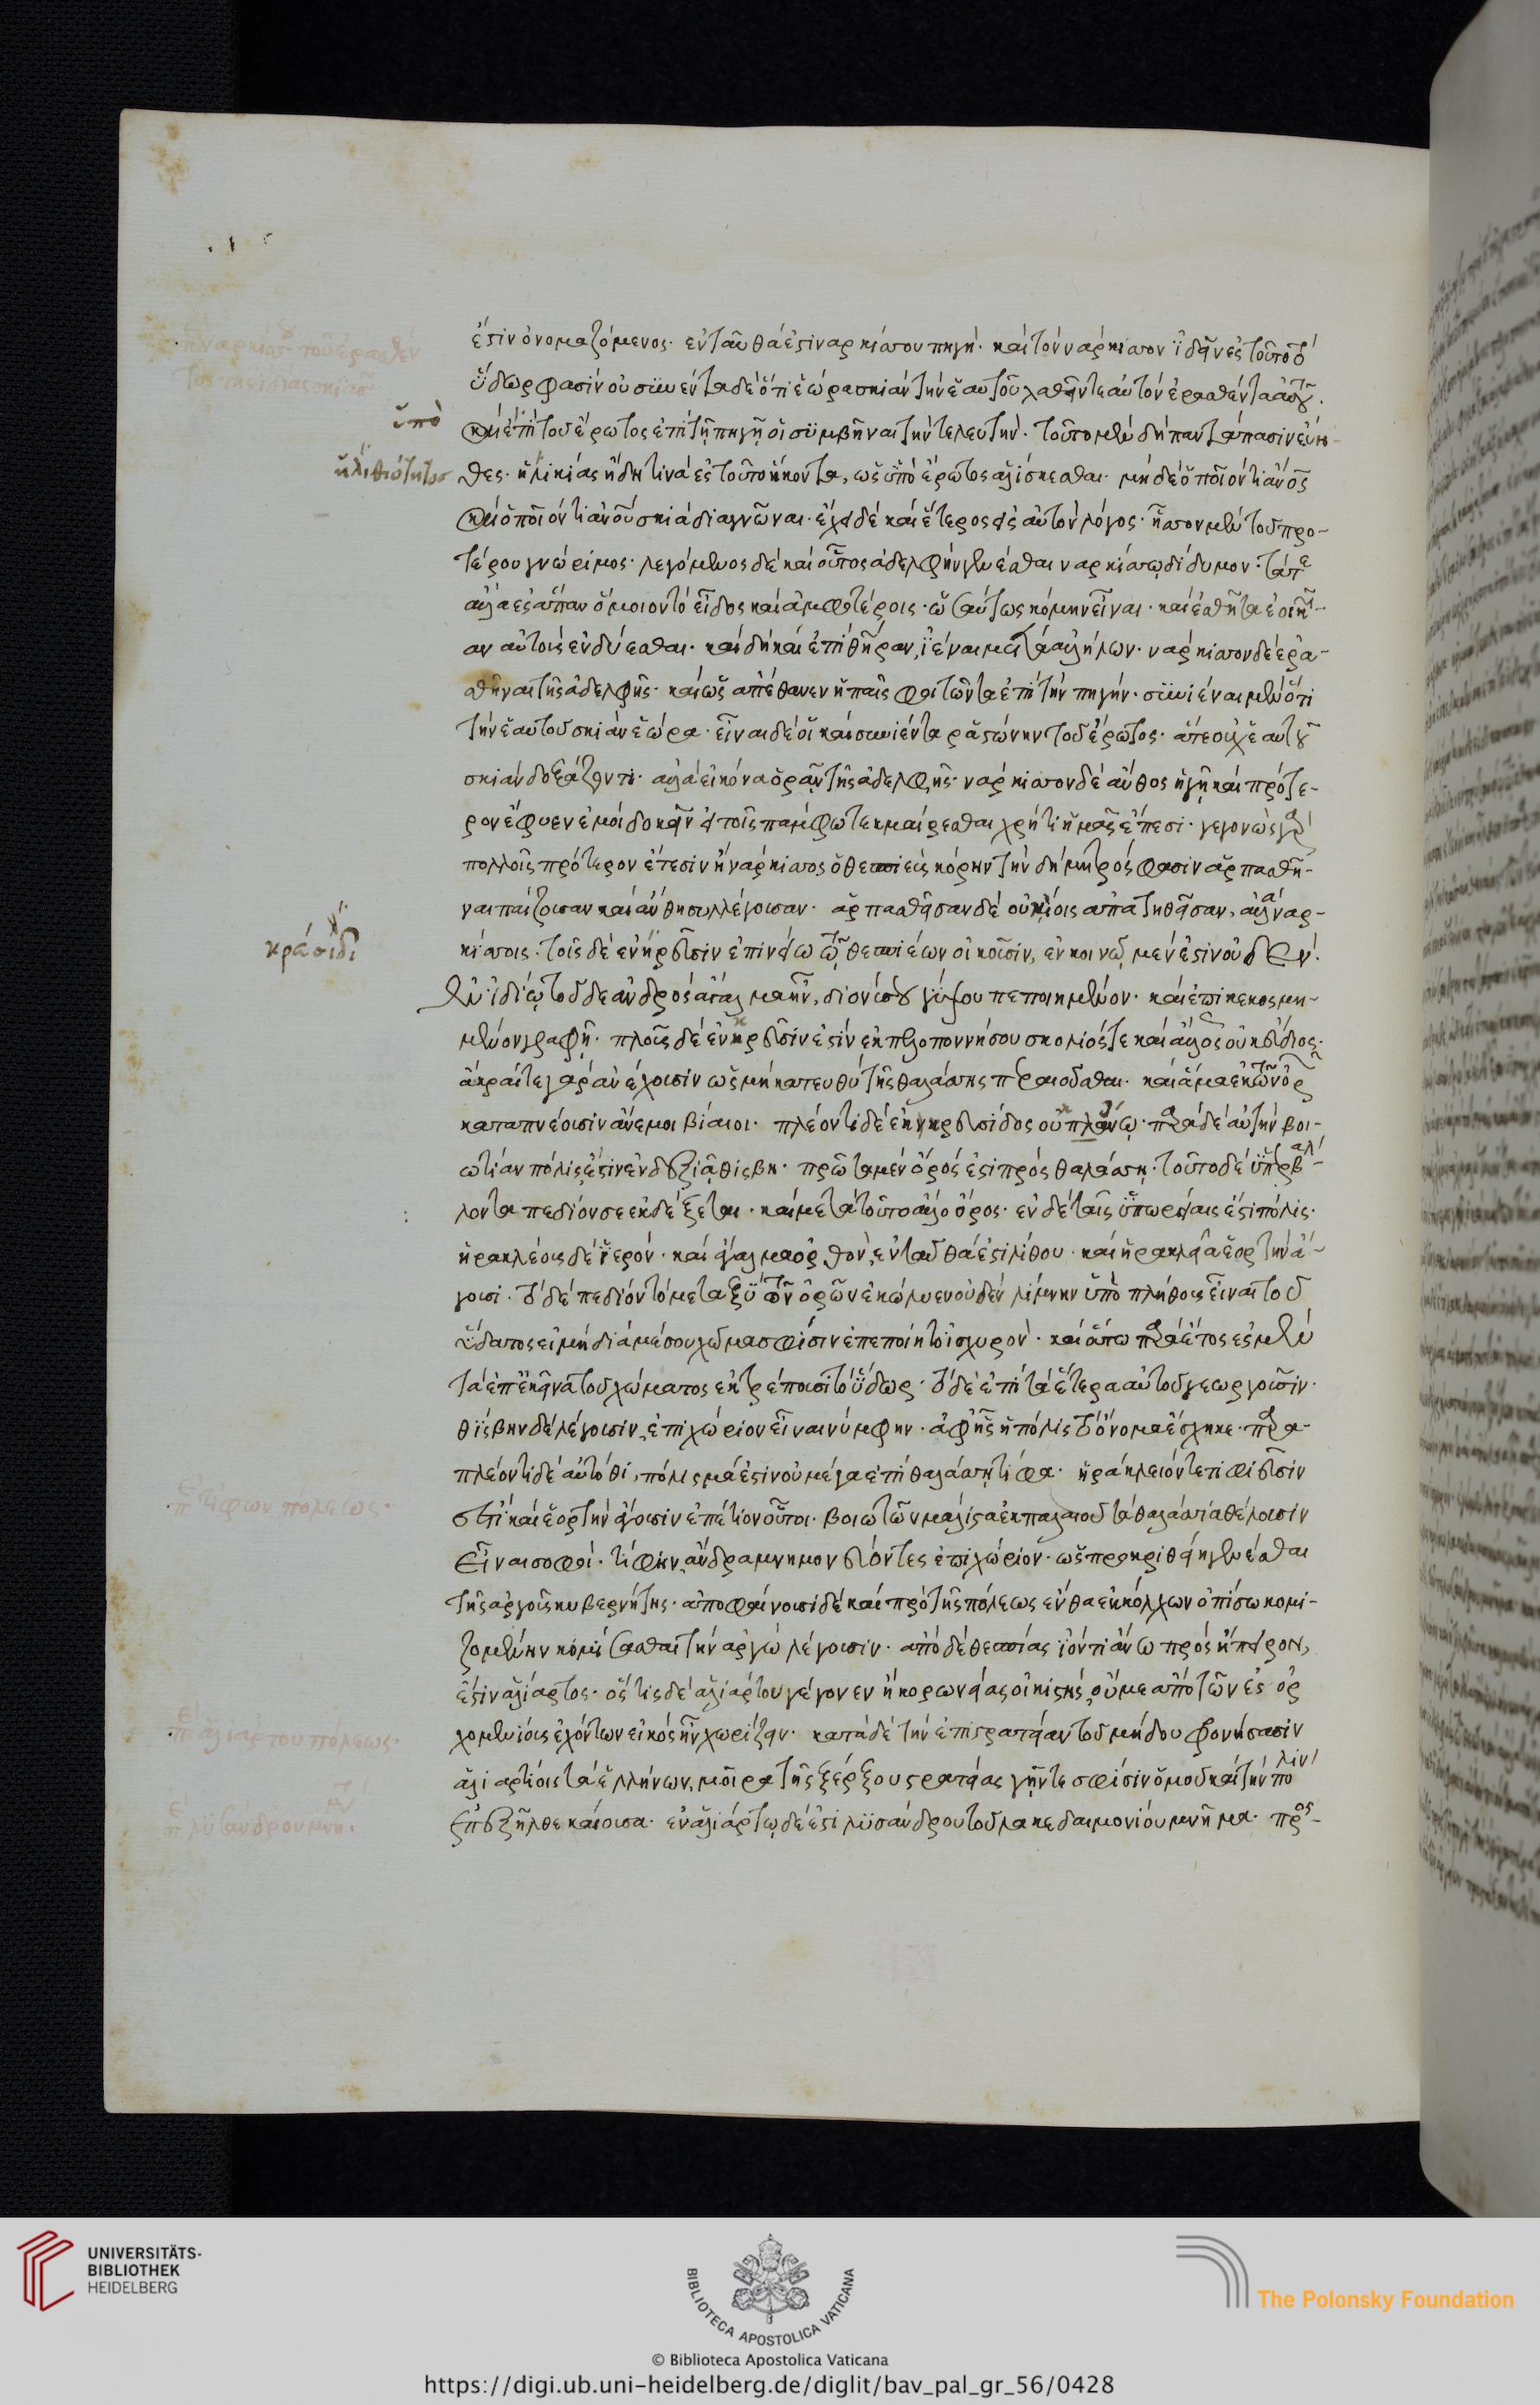 ἐστὶν ὀνομαζόμενος· ἐνταῦθά ἐστι ναρκίσσου πηγή· καὶ τὸν νάρκισσον ἰδεῖν ἐς τοῦτο τὸ
ὕδωρ φασίν· οὐ συνέντα δὲ ὅτι ἑώρα σκιὰν τὴν ἑαυτοῦ λαθεῖν τε αὐτὸν ἐρασθέντα αὑτοῦ.
ὑπὸ
καὶ ἐπὶ τοῦ ἔρωτος ἐπὶ τῇ πηγῇ οἱ συμβῆναι τὴν τελευτήν· τοῦτο μὲν δὴ παντάπασιν εὔη-
ἠλιθιότητος
θες· ἡλικίας ἤδη τινὰ ἐς τοῦτο ἥκοντα, ὡς ὑπὸ ἔρωτος ἁλίσκεσθαι· μηδὲ ὁποῖόν τι ἄνος
καὶ ὁποῖόν τι ἀνοῦ σκιὰ διαγνῶναι· ἔχει δὲ καὶ ἕτερος ἐς αὐτὸν λόγος· ἧσσον μὲν τοῦ προ-
τέρου γνώριμος· λεγόμενος δὲ καὶ οὗτος ἀδελφὴν γενέσθαι ναρκίσσῳ δίδυμον· τά τε
ἄλλα ἐς ἅπαν ὅμοιον τὸ εἶδος καὶ ἀμφοτέροις· ὡσαύτως κόμην εἶναι· καὶ ἐσθῆτα ἐοικυῖ-
αν αὐτοῖς ἐνδύεσθαι· καὶ δὴ καὶ ἐπὶ θήραν, ἰέναι μετὰ ἀλλήλων· νάρκισσον δὲ ἐρα-
σθῆναι τῆς ἀδελφῆς· καὶ ὡς ἀπέθανεν ἡ παῖς φοιτῶντα ἐπὶ τὴν πηγήν· συνιέναι μὲν ὅτι
τὴν ἑαυτοῦ σκιὰν ἑώρα· εἶναι δέ οἱ καὶ συνιέντα ῥᾳστώνην τοῦ ἔρωτος· ἅτε οὐχ ἑαυτοῦ
σκιὰν δοξάζοντι· ἀλλὰ εἰκόνα ὁρᾶν τῆς ἀδελφῆς· νάρκισσον δὲ ἄνθος ἡ γῆ καὶ πρότε-
ρον ἔφυεν ἐμοὶ δοκεῖν εἰ τοῖς πάμφω τεκμαίρεσθαι χρή τι ἡμᾶς ἔπεσι· γεγονὼς γὰρ
πολλοῖς πρότερον ἔτεσιν ἢ νάρκισσος ὁ θεσπιεὺς κόρην τὴν δήμητρός φασιν ἁρπασθῆ-
ναι παίζουσαν καὶ ἄνθη συλλέγουσαν· ἁρπασθεῖσαν δὲ οὐκ ἴοις ἀπατηθεῖσαν, ἀλλὰ ναρ-
κράσιδι
κίσσοις· τοῖς δὲ ἐν κρεῦσιν ἐπινείω τῶ θεσπιέων οἰκοῦσιν, ἐν κοινῷ μέν ἐστιν οὐδέν.
ἐν ἰδιώτου δὲ ἀνδρὸς ἄγαλμα ἦν, διονύσου γύψου πεποιημένον· καὶ ἐπικεκοσμη-
μένον γραφῇ· πλοῦς δὲ ἐν κρεῦσίν ἐστιν ἐκ πελοποννήσου σκολιός τε καὶ ἄλλως οὐκ εὔδιος·
ἄκραί τε γὰρ ἀνέχουσιν ὡς μὴ κατευθὺ τῆς θαλάσσης περαιοῦσθαι· καὶ ἅμα ἐκ τῶν ὀρ
καταπνέουσιν ἄνεμοι βίαιοι· πλέοντι δὲ ἐκ κρεύσιδος οὐκ ἄνω· παρὰ δὲ αὐτὴν βοι-
ωτίαν πόλις ἐστὶν ἐν δεξιᾷ θίσβη· πρῶτα μὲν ὄρος ἐστὶ πρὸς θαλάσσῃ· τοῦτο δὲ ὑπερβαλ-
λόντα πεδίον σε ἐκδέξεται· καὶ μετὰ τοῦτο ἄλλο ὄρος· ἐν δὲ ταῖς ὑπωρείαις ἐστὶ πόλις·
ἡρακλέους δὲ ἱερόν· καὶ ἄγαλμα ὀρθόν, ἐνταῦθά ἐστι λίθου· καὶ ἡράκλεια ἑορτὴν ἄ-
γουσι· τὸ δὲ πεδίον τὸ μεταξὺ τῶν ὀρῶν ἐκώλυεν οὐδὲν λίμνην ὑπὸ πλήθους εἶναι τοῦ
ὕδατος εἰ μὴ διὰ μέσου χῶμά σφισιν ἐπεποίητο ἰσχυρόν· καὶ οὕτω παρὰ ἔτος ἐς μὲν
τὰ ἐπέκεινα τοῦ χώματος ἐκτρέπουσι τὸ ὕδωρ· τὸ δὲ ἐπὶ τὰ ἕτερα αὐτοῦ γεωργοῦσιν·
θίσβην δὲ λέγουσιν, ἐπιχώριον εἶναι νύμφην· ἀφ' ἧς ἡ πόλις τὸ ὄνομα ἔσχηκε· παρα-
πλέοντι δὲ αὐτόθι, πόλισμά ἐστιν οὐ μέγα ἐπὶ θαλάσσῃ τίφα· ἡράκλειόν τε τιφεῦσίν
ἐ
π τίφων πόλεως·
ἐστι καὶ ἑορτὴν ἄγουσιν ἐπέτιον οὗτοι· βοιωτῶν μάλιστα ἐκ παλαιοῦ τὰ θαλάσσια θέλουσιν
εἶναι σοφοί· τίφην, ἄνδρα μνημονεύοντες ἐπιχώριον· ὡς προκριθείη γενέσθαι
τῆς ἀργοῦς κυβερνήτης· ἀποφαίνουσι δὲ καὶ πρὸ τῆς πόλεως ἔνθα ἐκ κόλχων ὀπίσω κομι-
ζομένην κομίσασθαι τὴν ἀργὼ λέγουσιν· ἀπὸ δὲ θεσπίας ἰόντι ἄνω πρὸς ἤπειρον,
ἐστὶν ἁλίαρτος· ὅστις δὲ ἁλιάρτου γέγονεν ἢ κορωνείας οἰκιστής, οὔ με ἀπὸ τῶν ἐς ὀρ
ἐ
π ἁλιάρτου πόλεως·
χομενίους ἐχόντων εἰκὸς ἦν χωρίζειν· κατὰ δὲ τὴν ἐπιστρατείαν τοῦ μήδου φρονήσασιν
ἁλιαρτίοις τὰ ἑλλήνων, μοῖρα τῆς ξέρξου στρατείας γῆν τε σφίσιν ὁμοῦ καὶ τὴν πόλιν
ἐ
π λυσάνδρου μνη.
ἐπεξῆλθε καίουσα· ἐν ἁλιάρτῳ δέ ἐστι λυσάνδρου τοῦ λακεδαιμονίου μνῆμα· προσ-
UNIVERSITÄTS-
BIBLIOTHEK
HEIDELBERG
BIBLIOTECA APOSTOLICA VATICANA
The Polonsky Foundation
© Biblioteca Apostolica Vaticana
https://digi.ub.uni-heidelberg.de/diglit/bav_pal_gr_56/0428